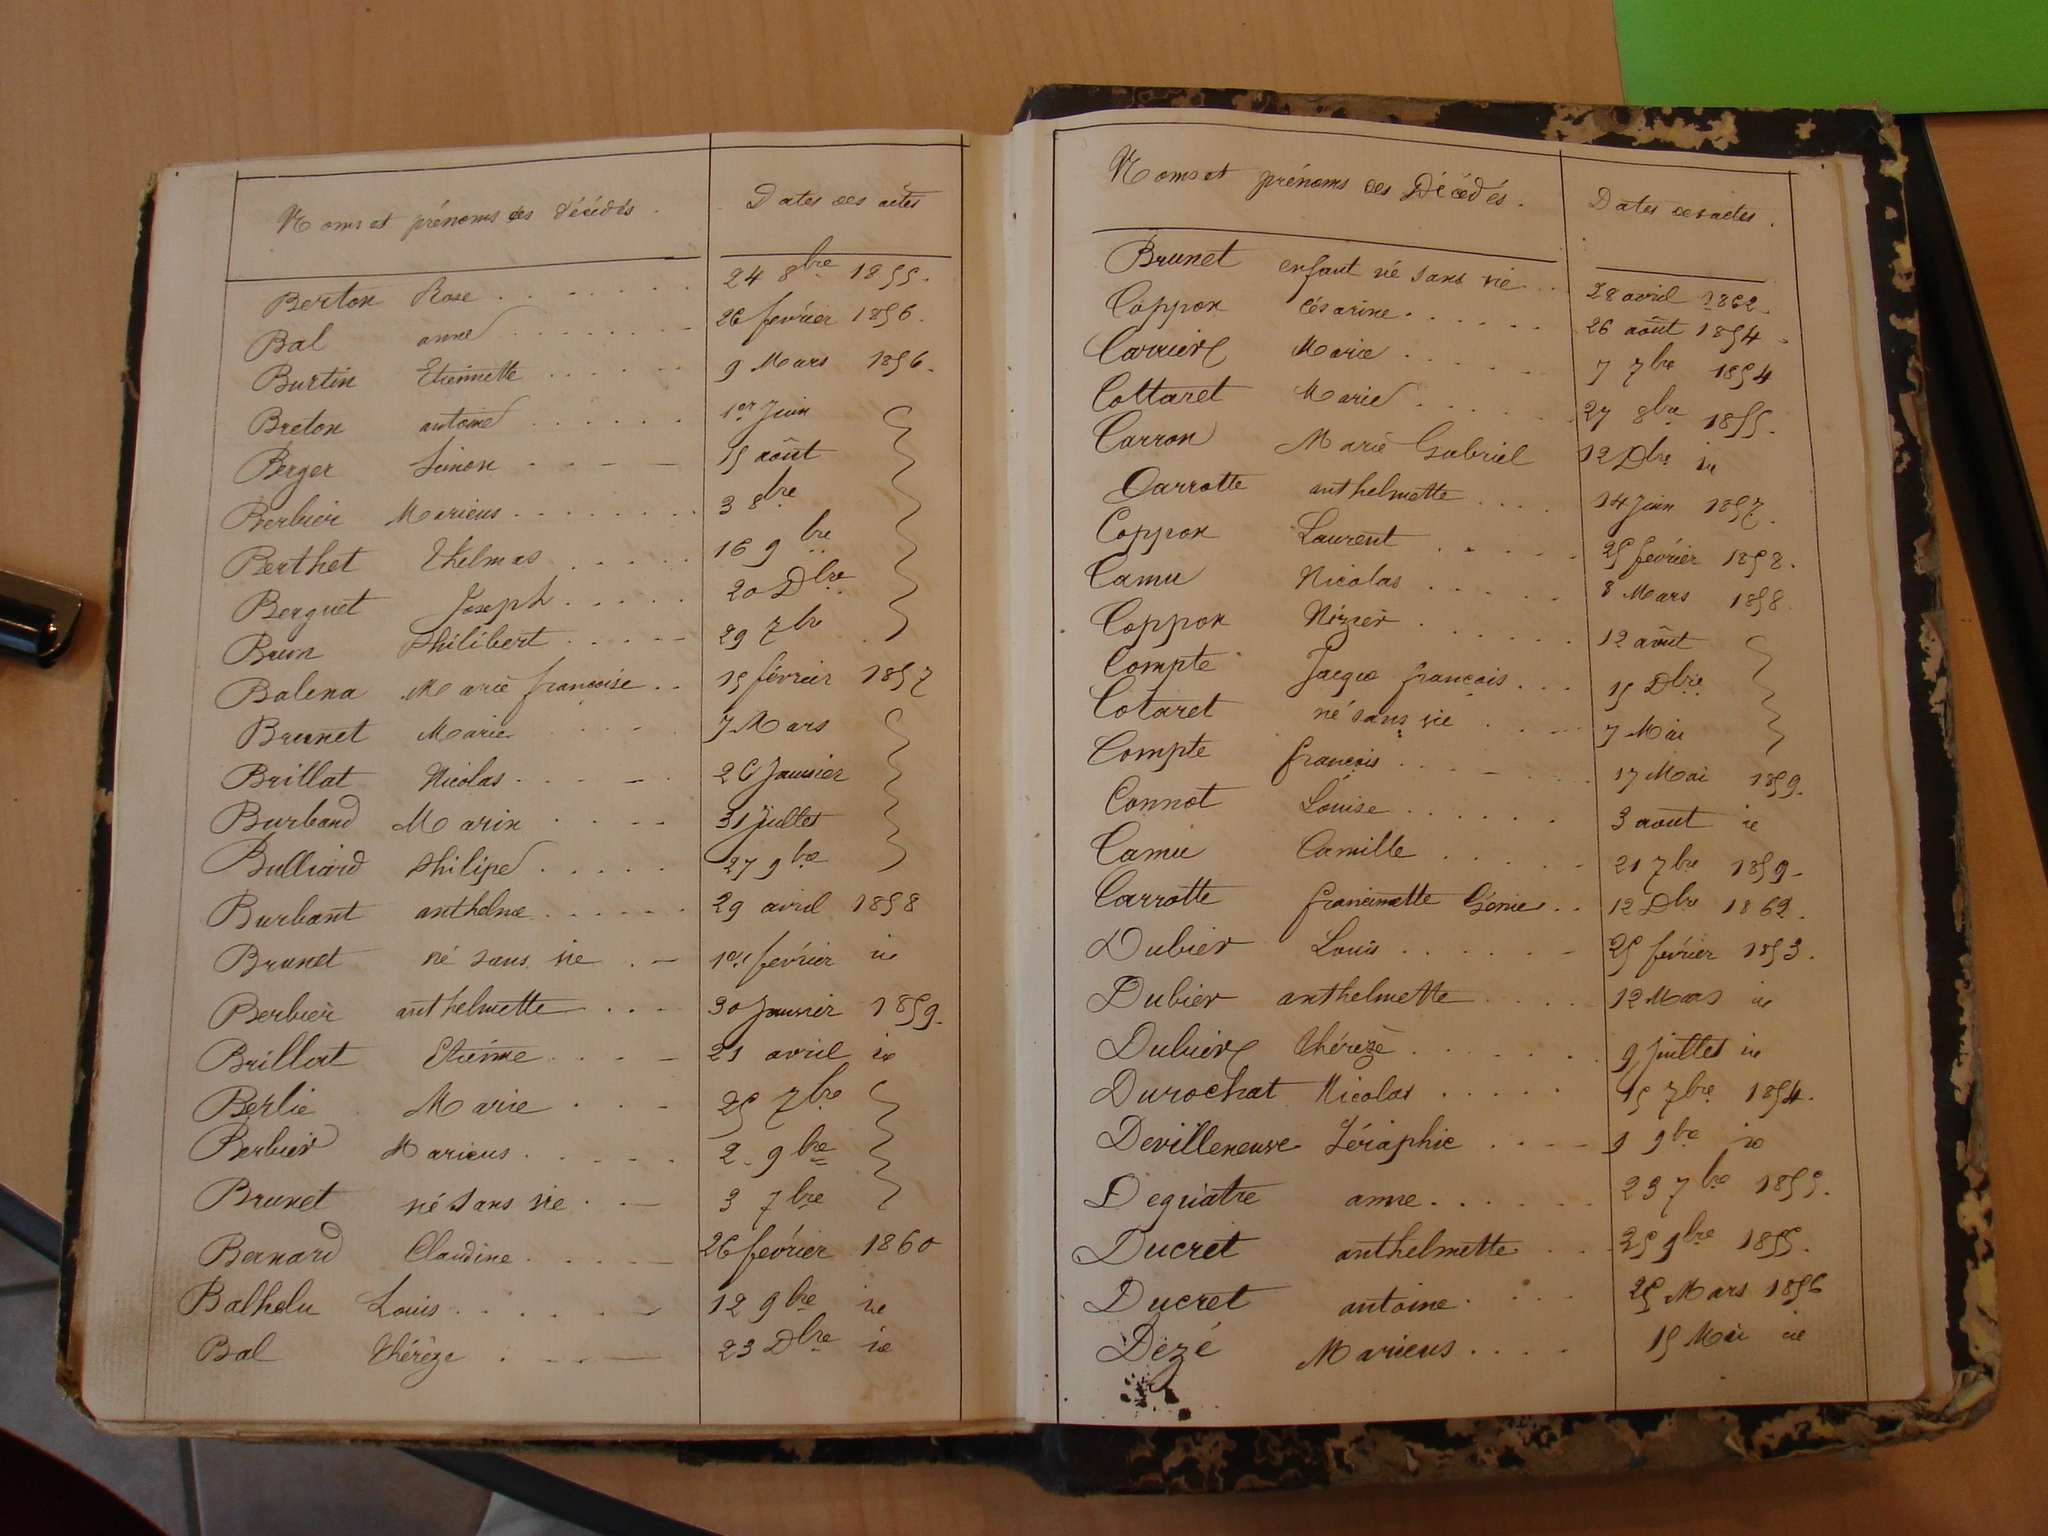 Noms et prénoms des décédés. Dates des actes
Berton Rose 24 8bre 1855.
Bal anne 26 fevrier 1856.
Burtin Etiennette 9 Mars 1856.
Breton antoine 1er Juin
Berger Simon 15 août
Berbier Marieus 3 8bre
Berthet thelmas 16 9bre
Berguet Joseph 20 Dbre
Brun Philibert 29 7bre
Balena Marie françoise 15 février 1857
Brunet Marie 7 Mars
Brillat Nicolas 26 Janvier
Burband Marin 31 Juillet
Bulliard Philipe 27 9bre
Burbant anthelme 29 avril 1858
Brunet né sans vie 1er février ie
Berbier anthelmette 30 Janvier 1859.
Brillat Etienne 21 avril ie
Berlie Marie 25 7bre
Berbier Marieus 2. 9bre
Brunet né sans vie 3 7bre
Bernard Claudine 26 février 1860
Balhelu Louis 12 9bre ie
Bal thérèze 23 Dbre ie
Noms et prénoms des Décédés. Dates des actes.
Brunet enfant né sans vie 28 avril 1862.
Coppon Césarine 26 août 1854
Carrier Marie 7 7bre 1854
Cottaret Marie 27 8bre 1855.
Carron Marie Gabriel 12 Dbre ie
Carrotte anthelmette 14 Juin 1857.
Coppon Laurent 25 février 1858.
Camu Nicolas 8 Mars 1858.
Coppon Nizier 12 août
Compte Jacque françois 15 Dbre
Cotaret né sans vie 7 Mai
Compte françois 17 Mai 1859.
Connot Louise 3 aout ie
Camu Camille 21 7bre 1859.
Carrotte francinette Génie 12 Dbre 1862.
Dubier Louis 25 février 1853.
Dubier anthelmette 12 Mars ie
Dubier thérèze 9 Juillet ie
Durochat Nicolas 15 7bre 1854.
Devilleneuve Séraphie 1 9bre ie
Dequatre anne 23 7bre 1855.
Ducret anthelmette 25 9bre 1855.
Ducret antoine 25 Mars 1856
Dezé Marieus 15 Mai ie